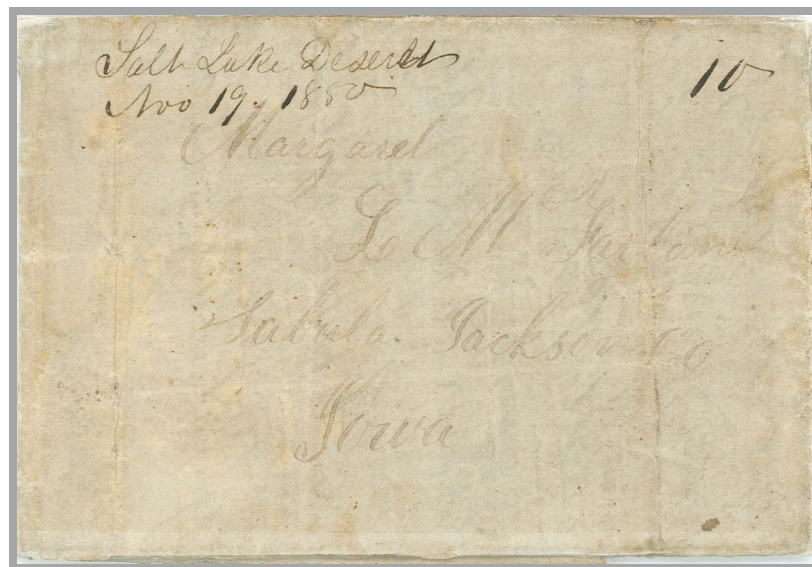 Salt Lake Deseret
Nov 19. 1850
10
Margaret
L Mc
Sabula Jackson Co
Iowa